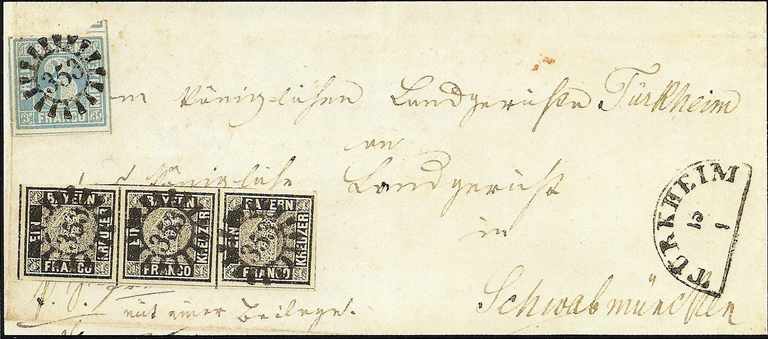 353
FRANCO
Vom Königlichen Landgerichte Türkheim
an
Königliche Landgericht
in
Schwabmünchen
mit einer Beilage.
BAYERN BAYERN BAYERN
EIN KREUZER EIN KREUZER EIN KREUZER
353 353 353
FRANCO FRANCO FRANCO
TÜRKHEIM